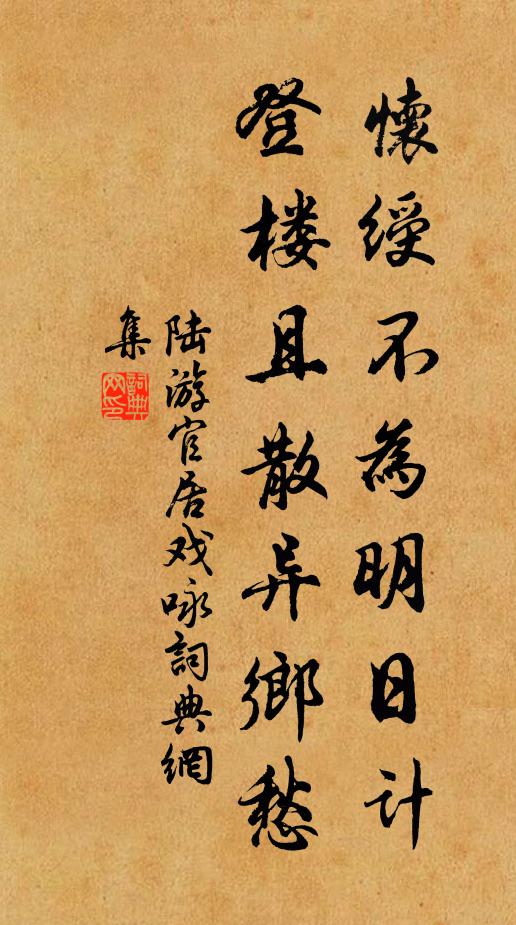 懷綬不為明日计
登楼且散异鄉愁
陆游官居戏咏詞典網
集
詞典网印